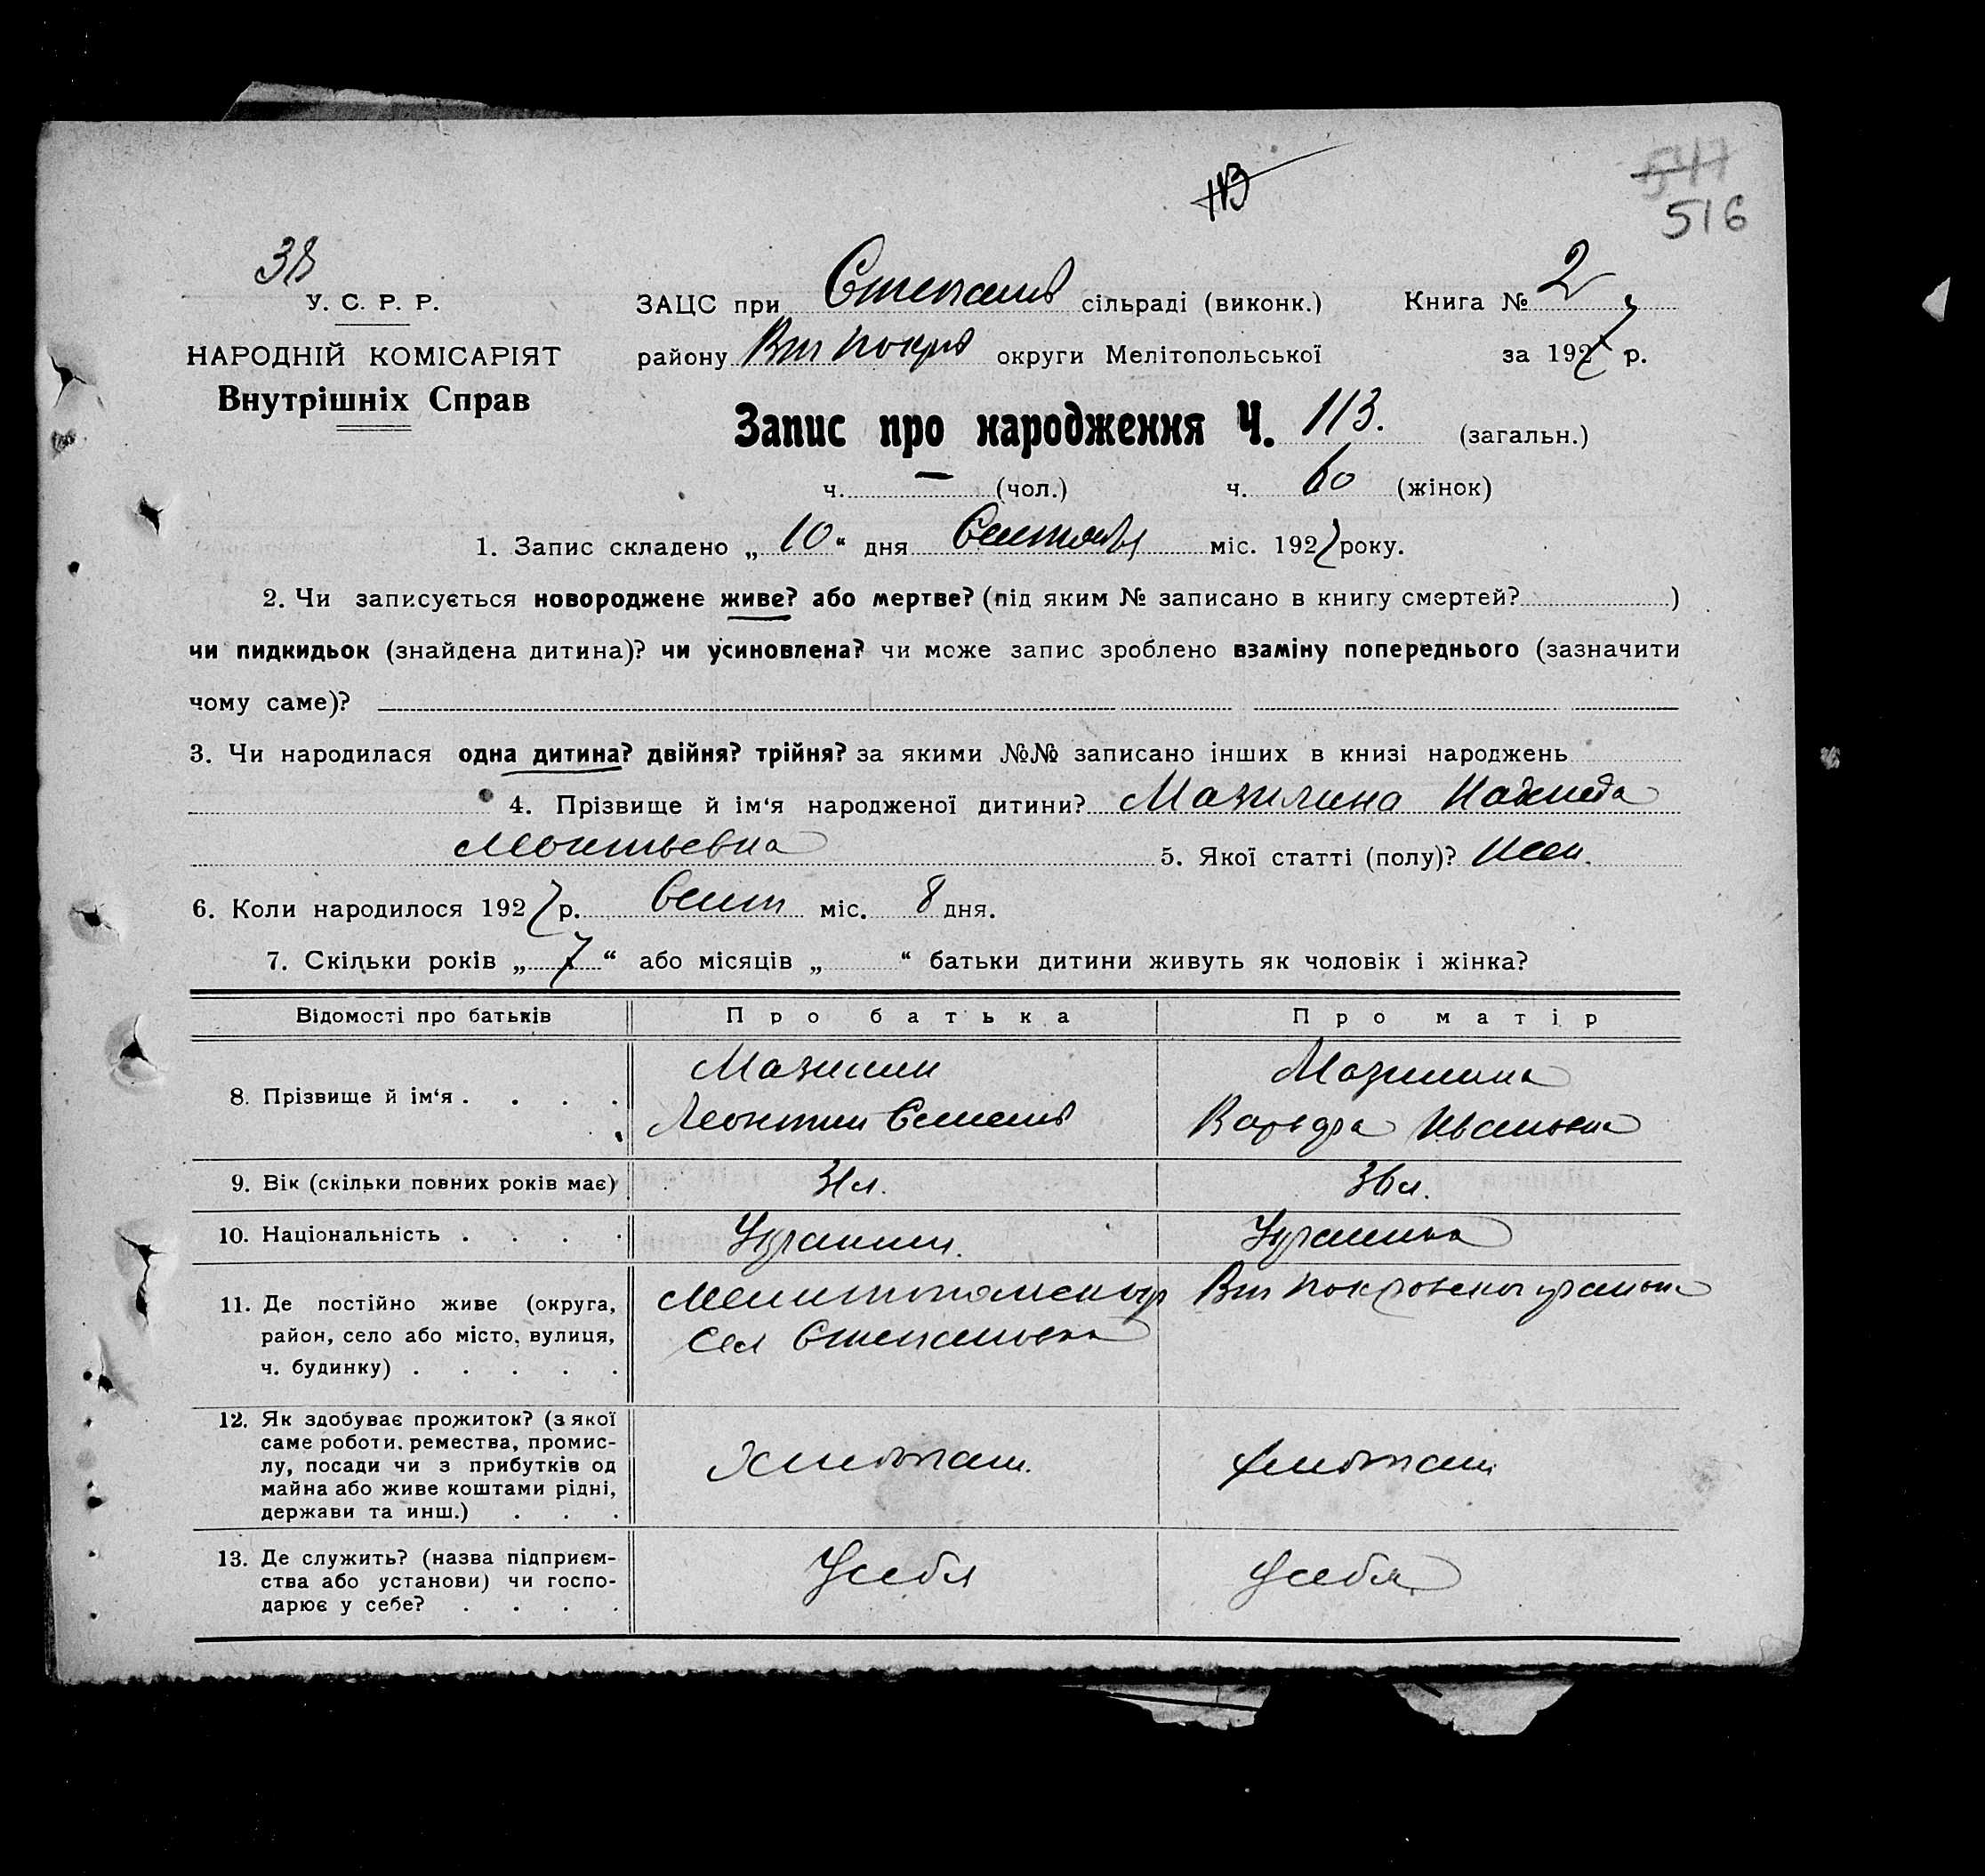 547
516
113
38
У. С. Р. Р.
НАРОДНІЙ КОМІСАРІЯТ
Внутрішніх Справ
ЗАЦС при Степанов сільраді (виконк.) Книга № 2
району Вт Покров округи Мелітопольської за 1927 р.
Запис про народження Ч. 113. (загальн.)
ч. — (чол.) ч. 60 (жінок)
1. Запис складено „ 10 “ дня Сентября міс. 1927 року.
2. Чи записується новороджене живе? або мертве? (під яким № записано в книгу смертей? )
чи пидкидьок (знайдена дитина)? чи усиновлена? чи може запис зроблено взаміну попереднього (зазначити
чому саме)?
3. Чи народилася одна дитина? двійня? трійня? за якими №№ записано інших в книзі народжень
4. Прізвище й ім‘я народженої дитини? Мазилина Надежда
Леонтьевна 5. Якої статті (полу)? жен.
6. Коли народилося 1927 р. Сент міс. 8 дня.
7. Скільки років „ 7 “ або місяців „ “ батьки дитини живуть як чоловік і жінка?
Відомості про батьків Про батька Про матір
8. Прізвище й ім‘я . . . . Мазилин Мазилина
Леонтий Ивановна
9. Вік (скільки повних років має) 31 л. 36 л.
10. Національність . . . . Украинец. Украинка
11. Де постійно живе (округа, Вт Покровского района
район, село або місто, вулиця, сел Степановка
ч. будинку) . . . . .
12. Як здобуває прожиток? (з якої
саме роботи, ремества, промис-
лу, посади чи з прибутків од Хлебопаш. Хлебопаш
майна або живе коштами рідні,
держави та инш.) . . .
13. Де служить? (назва підприєм-
ства або установи) чи госпо- У себя У себя
дарює у себе? . . . .